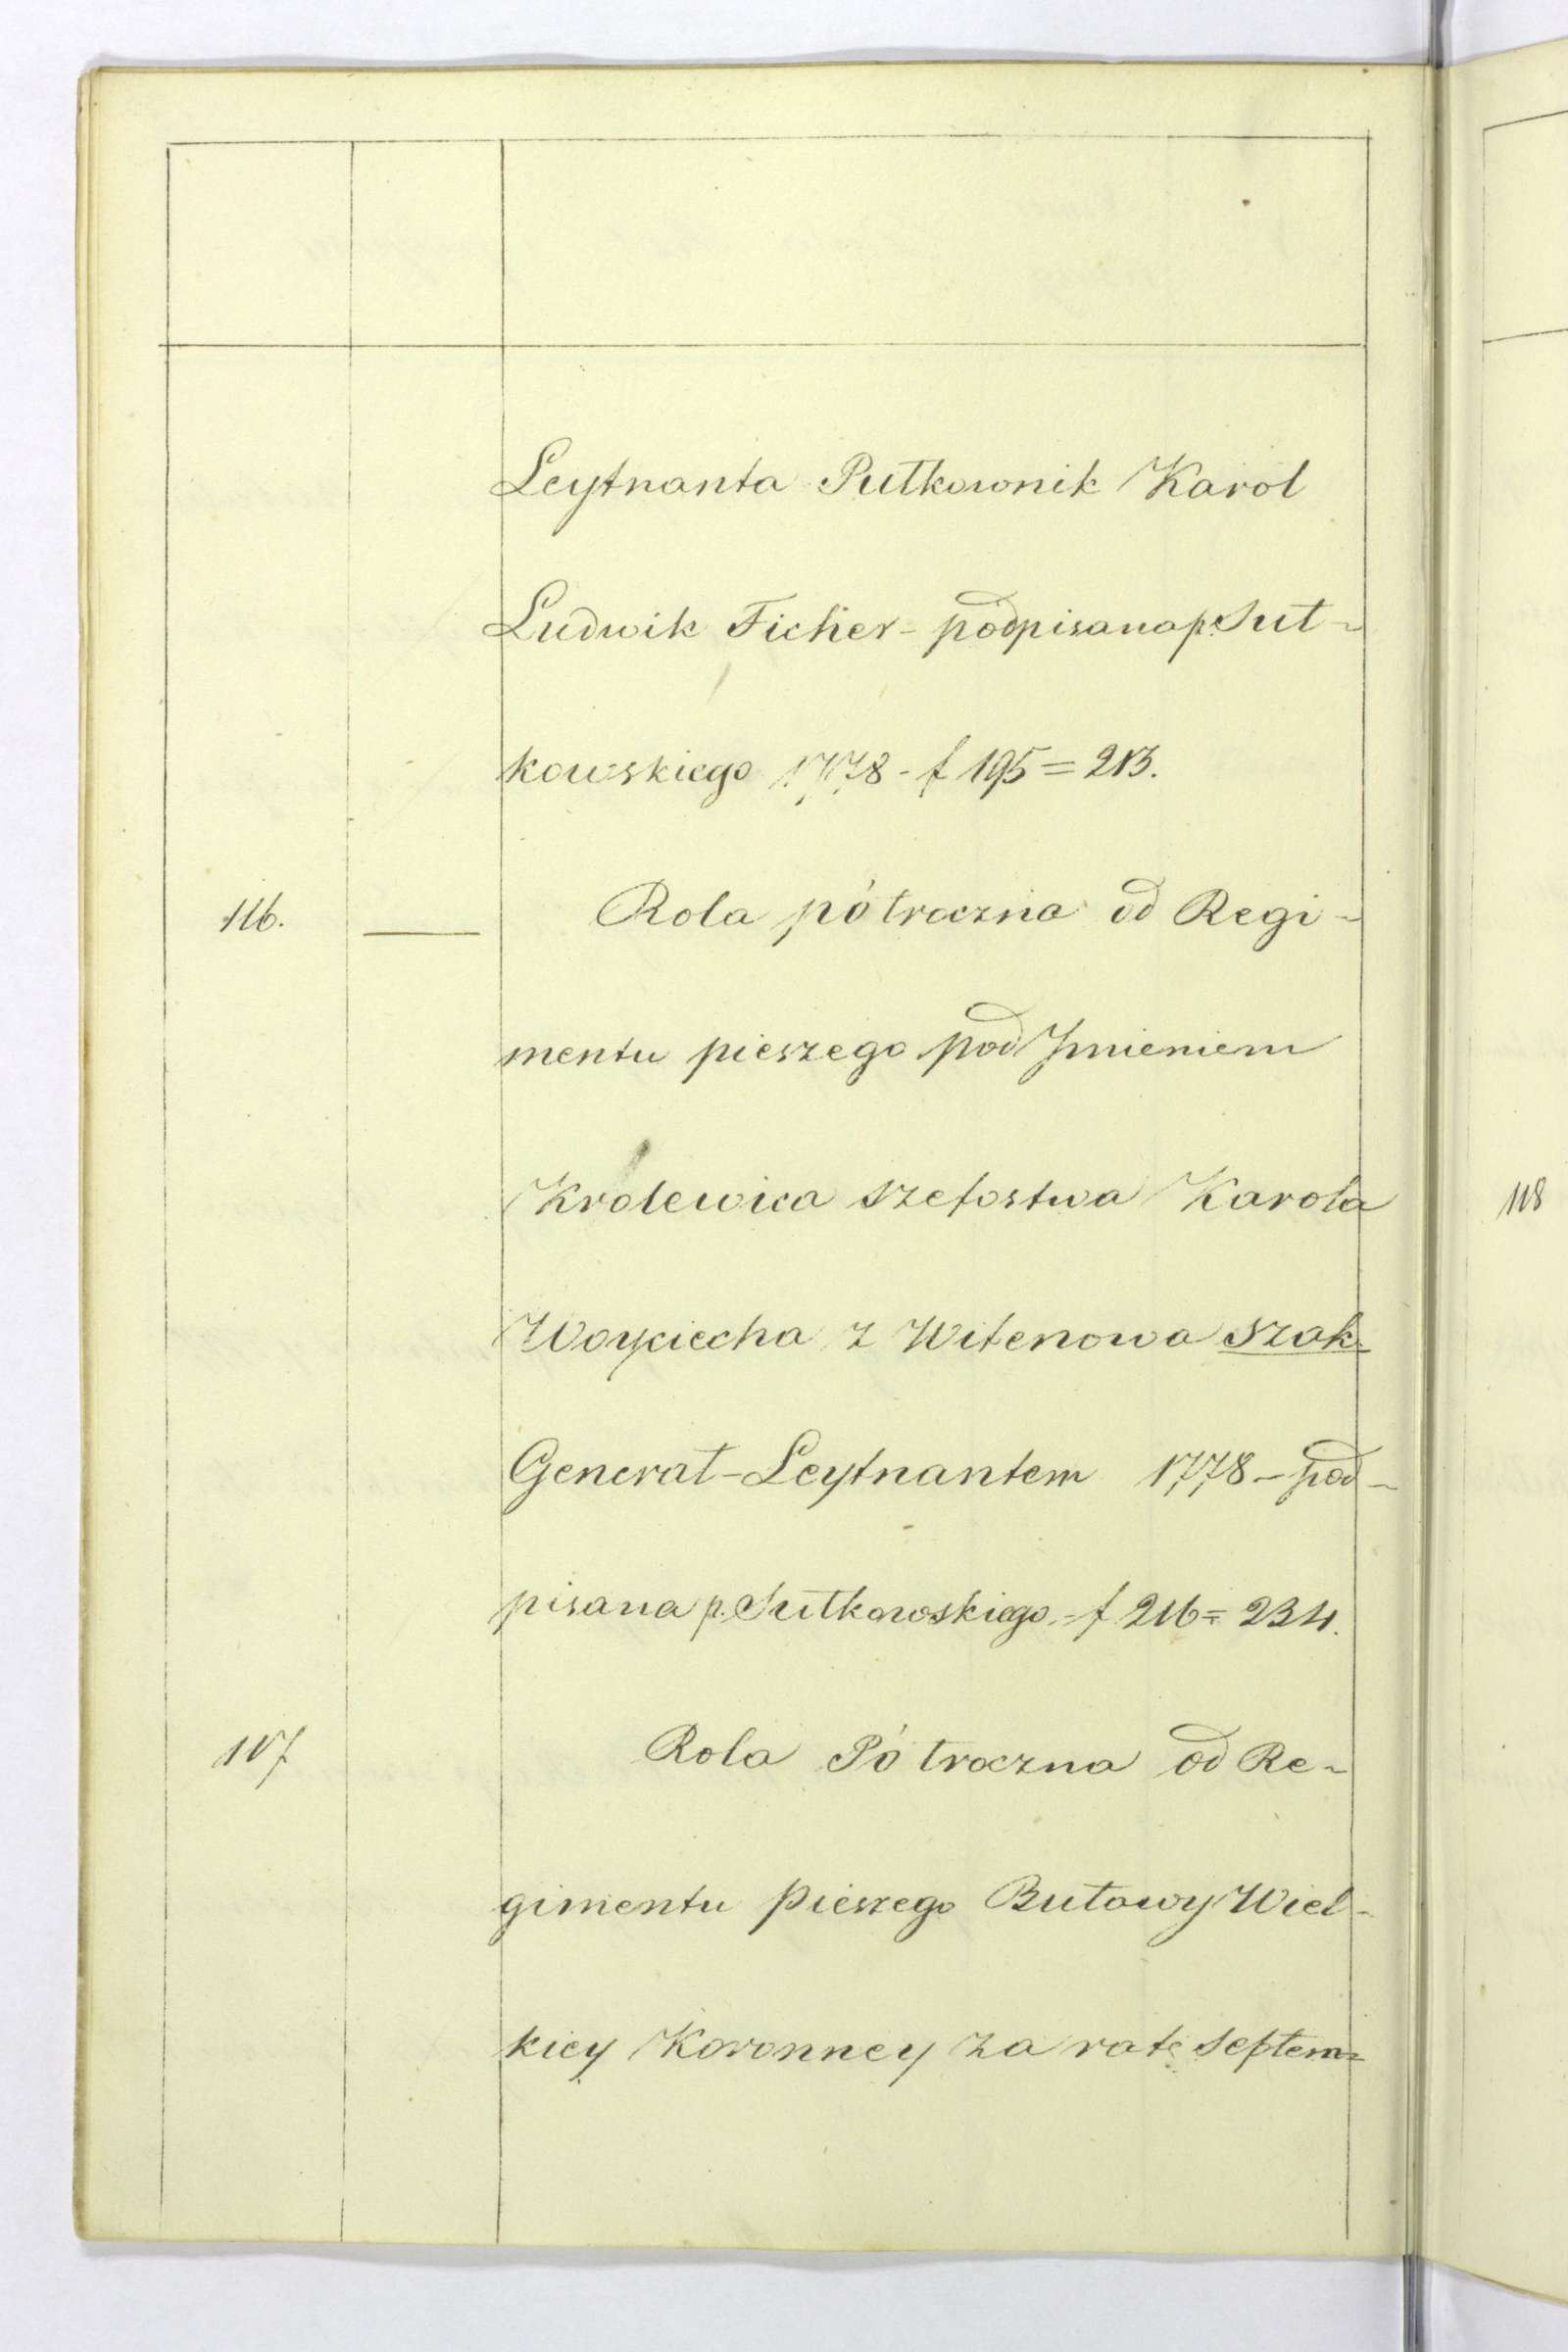 Leytnanta Pułkownik Karol
Ludwik Ficher - podpisana p. Suł-
kowskiego 1778 - f 195 = 213.
116. — Rola półroczna od Regi-
mentu pieszego pod Jmieniem
Królewica szefostwa Karola
Woyciecha z Witenowa Szak-
Generał-Leytnantem 1778 - pod-
pisana p. Sułkowskiego - f 216 = 234.
117 Rola Półroczna od Re-
gimentu Pieszego Buławy Wiel-
kiey Koronney za ratę Septem-
118